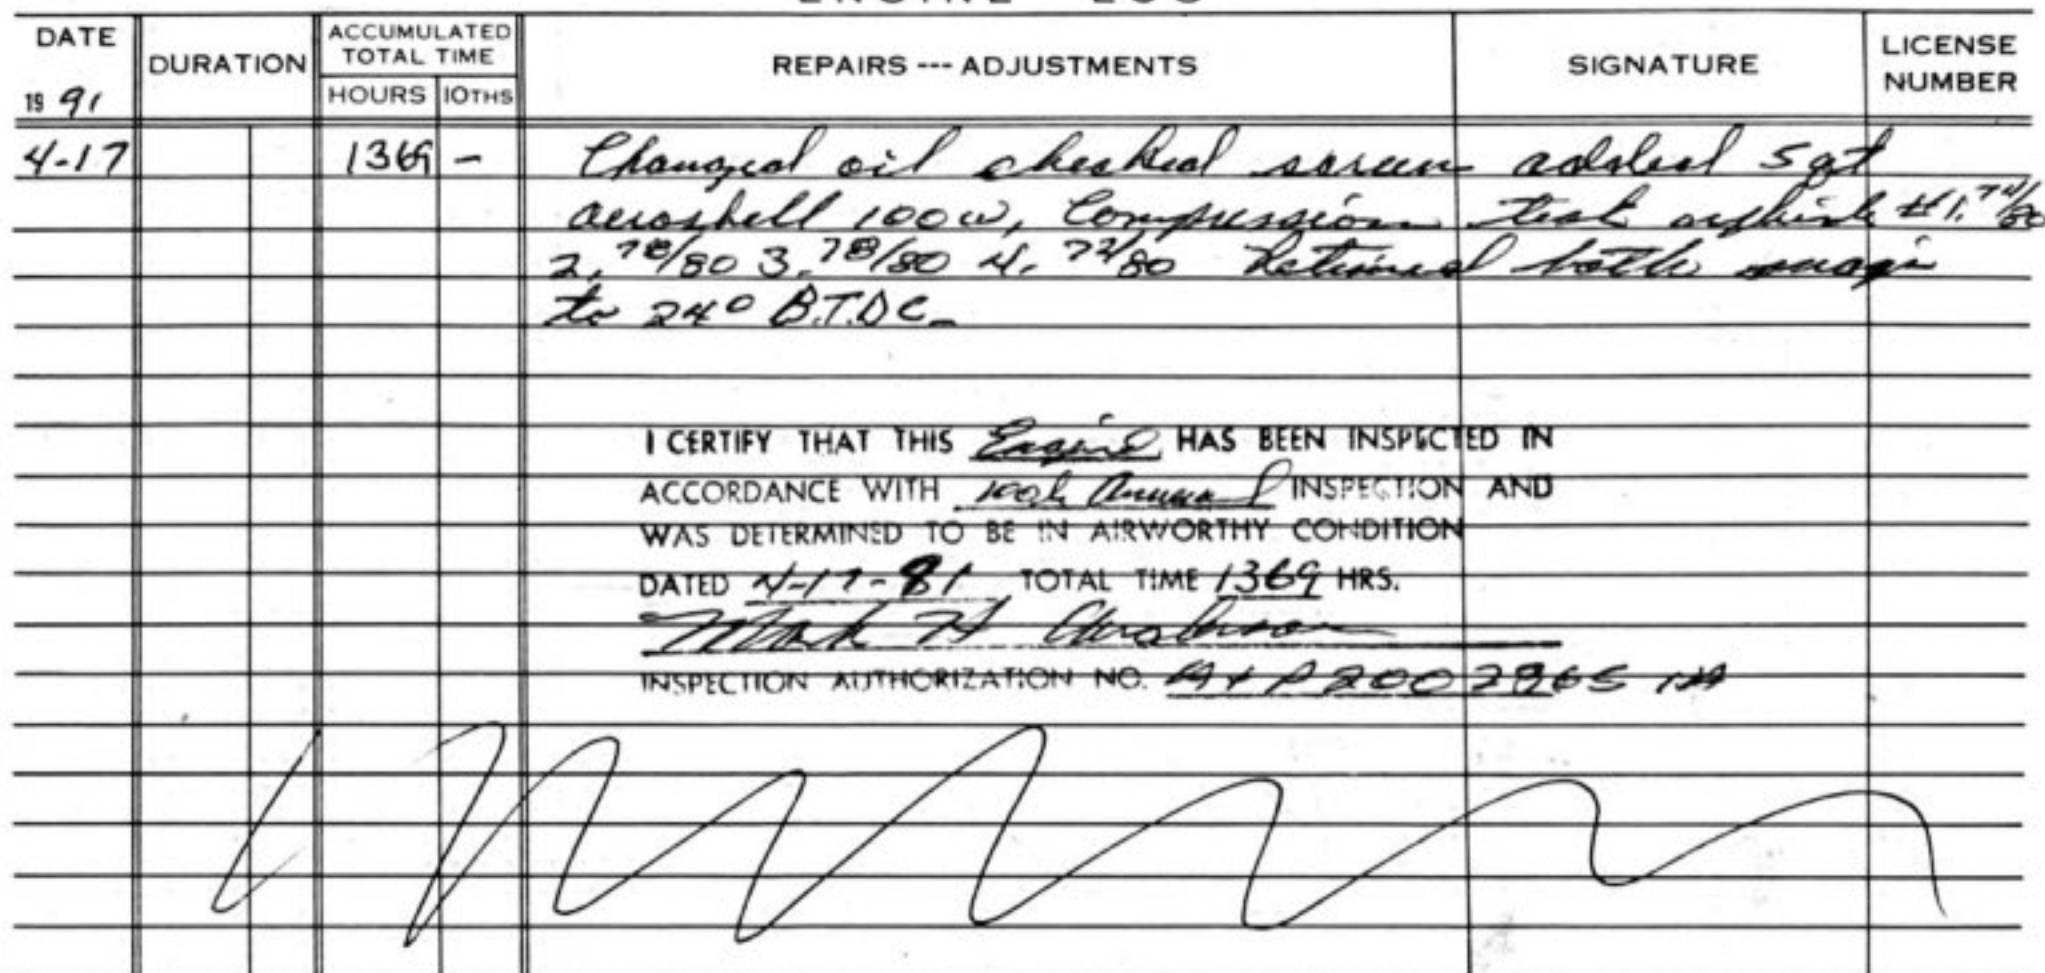 ENGINE LOG
DATE
1991
DURATION
ACCUMULATED
TOTAL TIME
HOURS
10THS
REPAIRS --- ADJUSTMENTS
SIGNATURE
LICENSE
NUMBER
4-17 1369 - Changed oil checked screen added 5 qt
aeroshell 100w, Compression test #1. 74/80
2. 78/80 3. 78/80 4. 72/80 Retimed both mags
to 24° B.T.D.C.
I CERTIFY THAT THIS Engine HAS BEEN INSPECTED IN
ACCORDANCE WITH 100h Annual INSPECTION AND
WAS DETERMINED TO BE IN AIRWORTHY CONDITION
DATED 4-17-91 TOTAL TIME 1369 HRS.
Mark H
INSPECTION AUTHORIZATION NO. A+P 2002965 IA